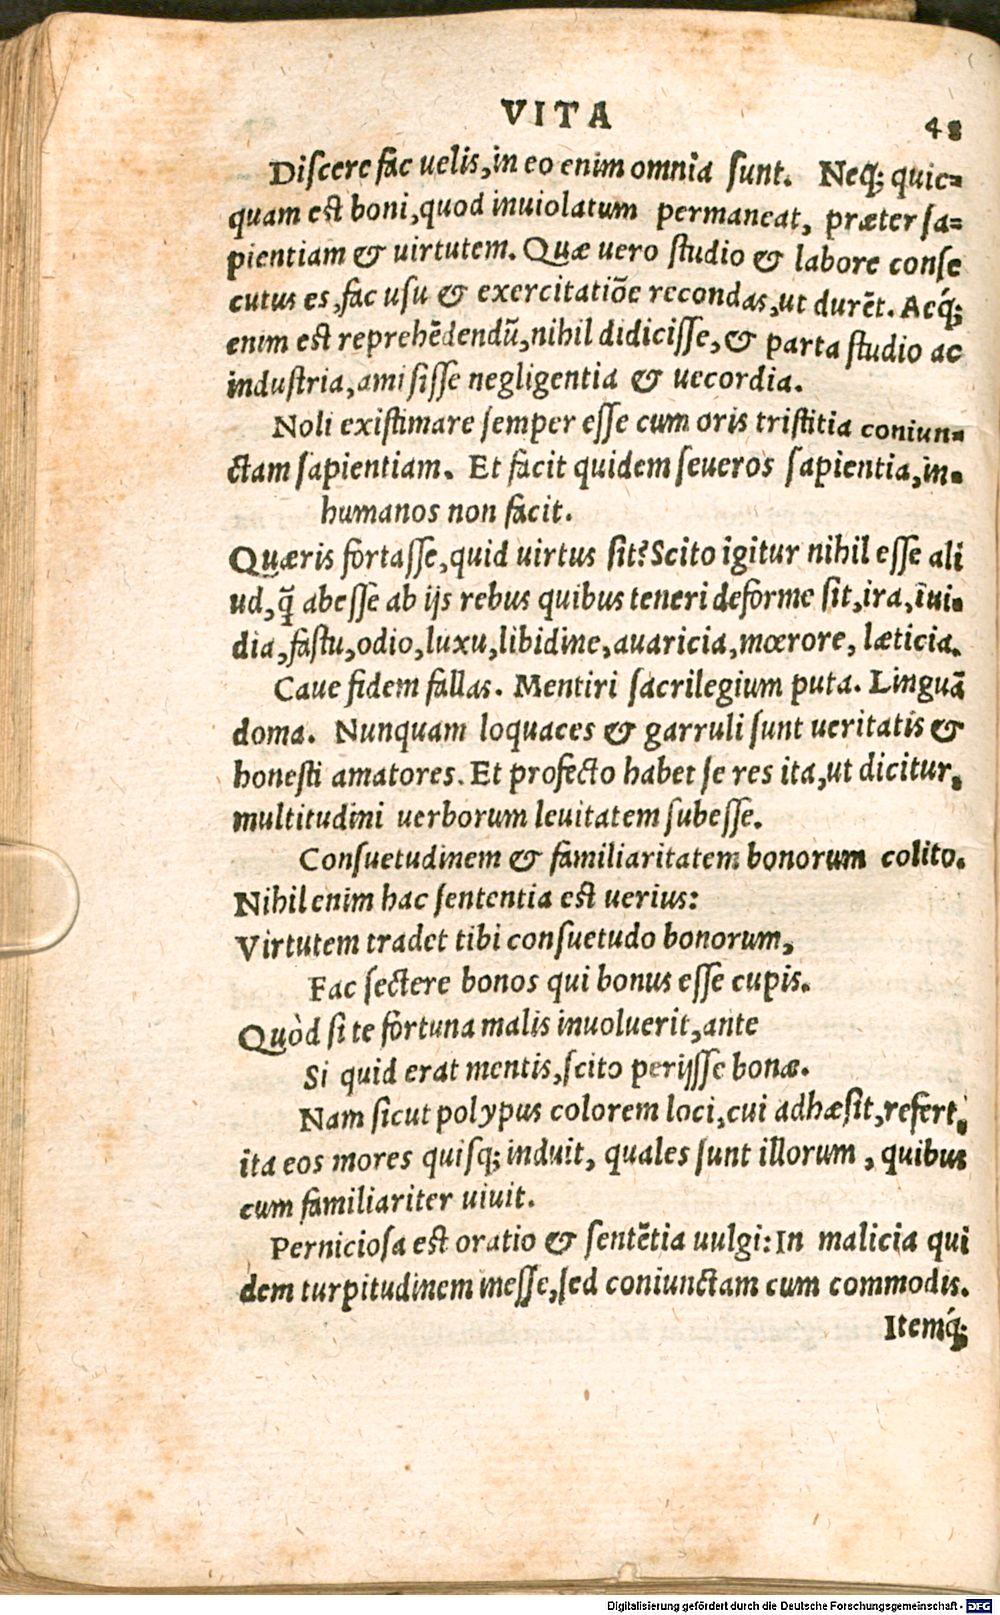 VITA
48
Diſcere fac uelis, in eo enim omnia ſunt. Neq; quic=
quam est boni, quod inuiolatum permaneat, præter ſa=
pientiam & uirtutem. Quæ uero ſtudio & labore conſe
cutus es, fac uſu & exercitatiõe recondas, ut durẽt. Aeq́;
enim est reprehẽdendũ, nihil didiciſſe, & parta ſtudio ac
induſtria, amiſiſſe negligentia & uecordia.
Noli exiſtimare ſemper eſſe cum oris triſtitia coniun=
ctam ſapientiam. Et facit quidem ſeueros ſapientia, in=
humanos non facit.
Quæris fortaſſe, quid uirtus ſit? Scito igitur nihil eſſe ali
ud, q̃ abeſſe ab ijs rebus quibus teneri deforme ſit, ira, ĩui=
dia, faſtu, odio, luxu, libidine, auaricia, mœrore, læticia.
Caue fidem fallas. Mentiri ſacrilegium puta. Linguã
doma. Nunquam loquaces & garruli ſunt ueritatis &
honeſti amatores. Et profecto habet ſe res ita, ut dicitur,
multitudini uerborum leuitatem ſubeſſe.
Conſuetudinem & familiaritatem bonorum colito.
Nihil enim hac ſententia est uerius:
Virtutem tradet tibi conſuetudo bonorum,
Fac ſectere bonos qui bonus eſſe cupis.
Quòd ſi te fortuna malis inuoluerit, ante
Si quid erat mentis, ſcito perijſſe bonæ.
Nam ſicut polypus colorem loci, cui adhæſit, refert,
ita eos mores quiſq; induit, quales ſunt illorum, quibus
cum familiariter uiuit.
Pernicioſa est oratio & ſentẽtia uulgi: In malicia qui
dem turpitudinem ineſſe, ſed coniunctam cum commodis.
Itemq́;
Digitalisierung gefördert durch die Deutsche Forschungsgemeinschaft - DFG